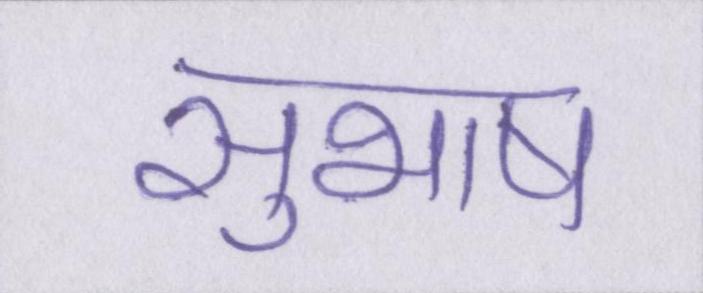 सुभाष